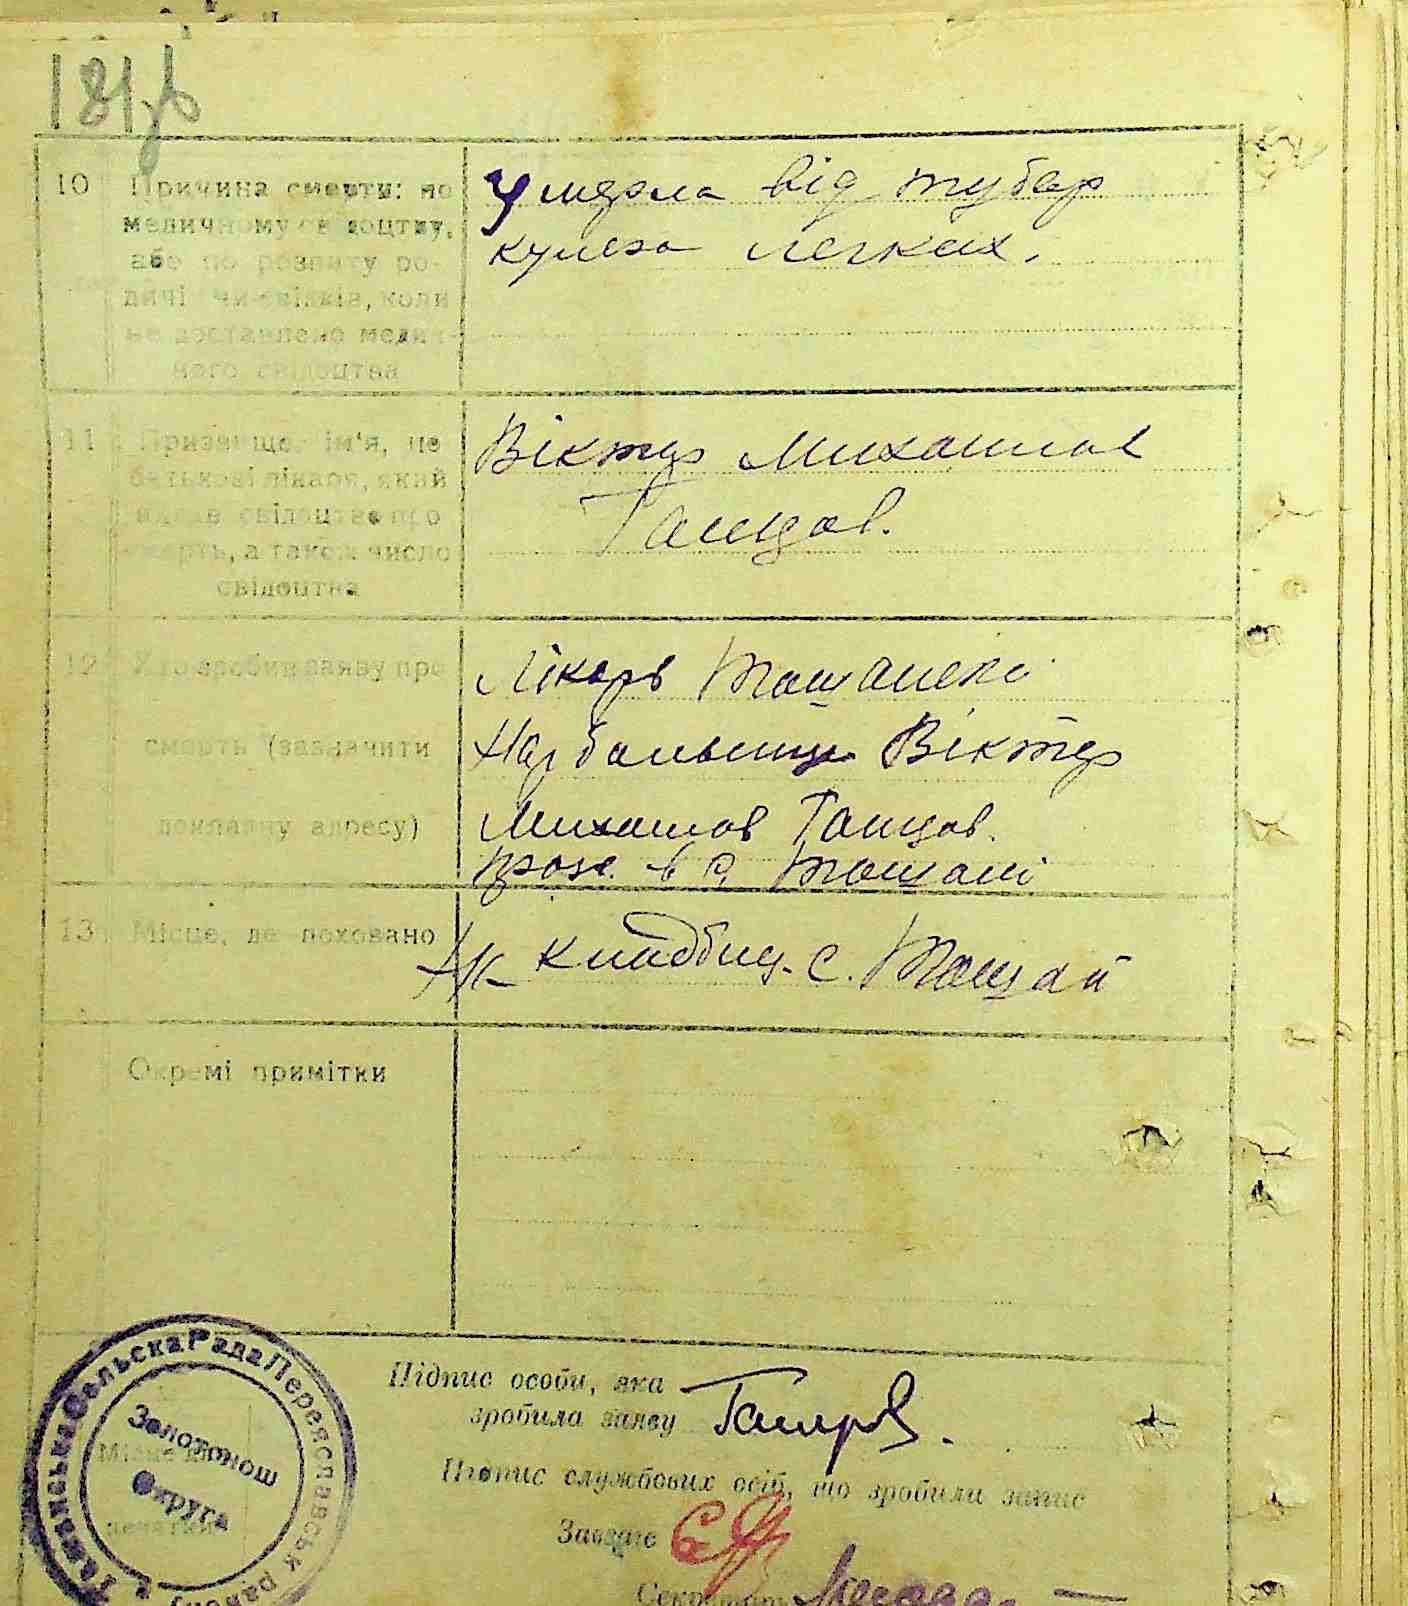 181зв
10 Причина смерти: по
медичному свідоцтву,
або по розпиту ро-
дичів чи свідків, коли
не доставлено медич-
ного свідоцтва
Умерла від тубер
кулеза легких.
11 Призвище, ім'я, по
батькові лікаря, який
видав свідоцтво про
смерть, а також число
свідоцтва
Віктор Михайлов
Ганцов.
12 Хто зробив заяву про
смерть (зазначити
докладну адресу)
Лікарь Ташанскі
Віктор
Михайлов Ганцов.
прож. в с. Ташані
13 Місце, де поховано
На кладбищ. с. Ташан
Окремі примітки
Підпис особи, яка
зробила заяву Ганцов.
Підпис службових осіб, що зробили запис
Завзагс
Секретарь
Ташанська Сельска Рада Переяславськ район
Золотонош
Округа
Місце для
печатки